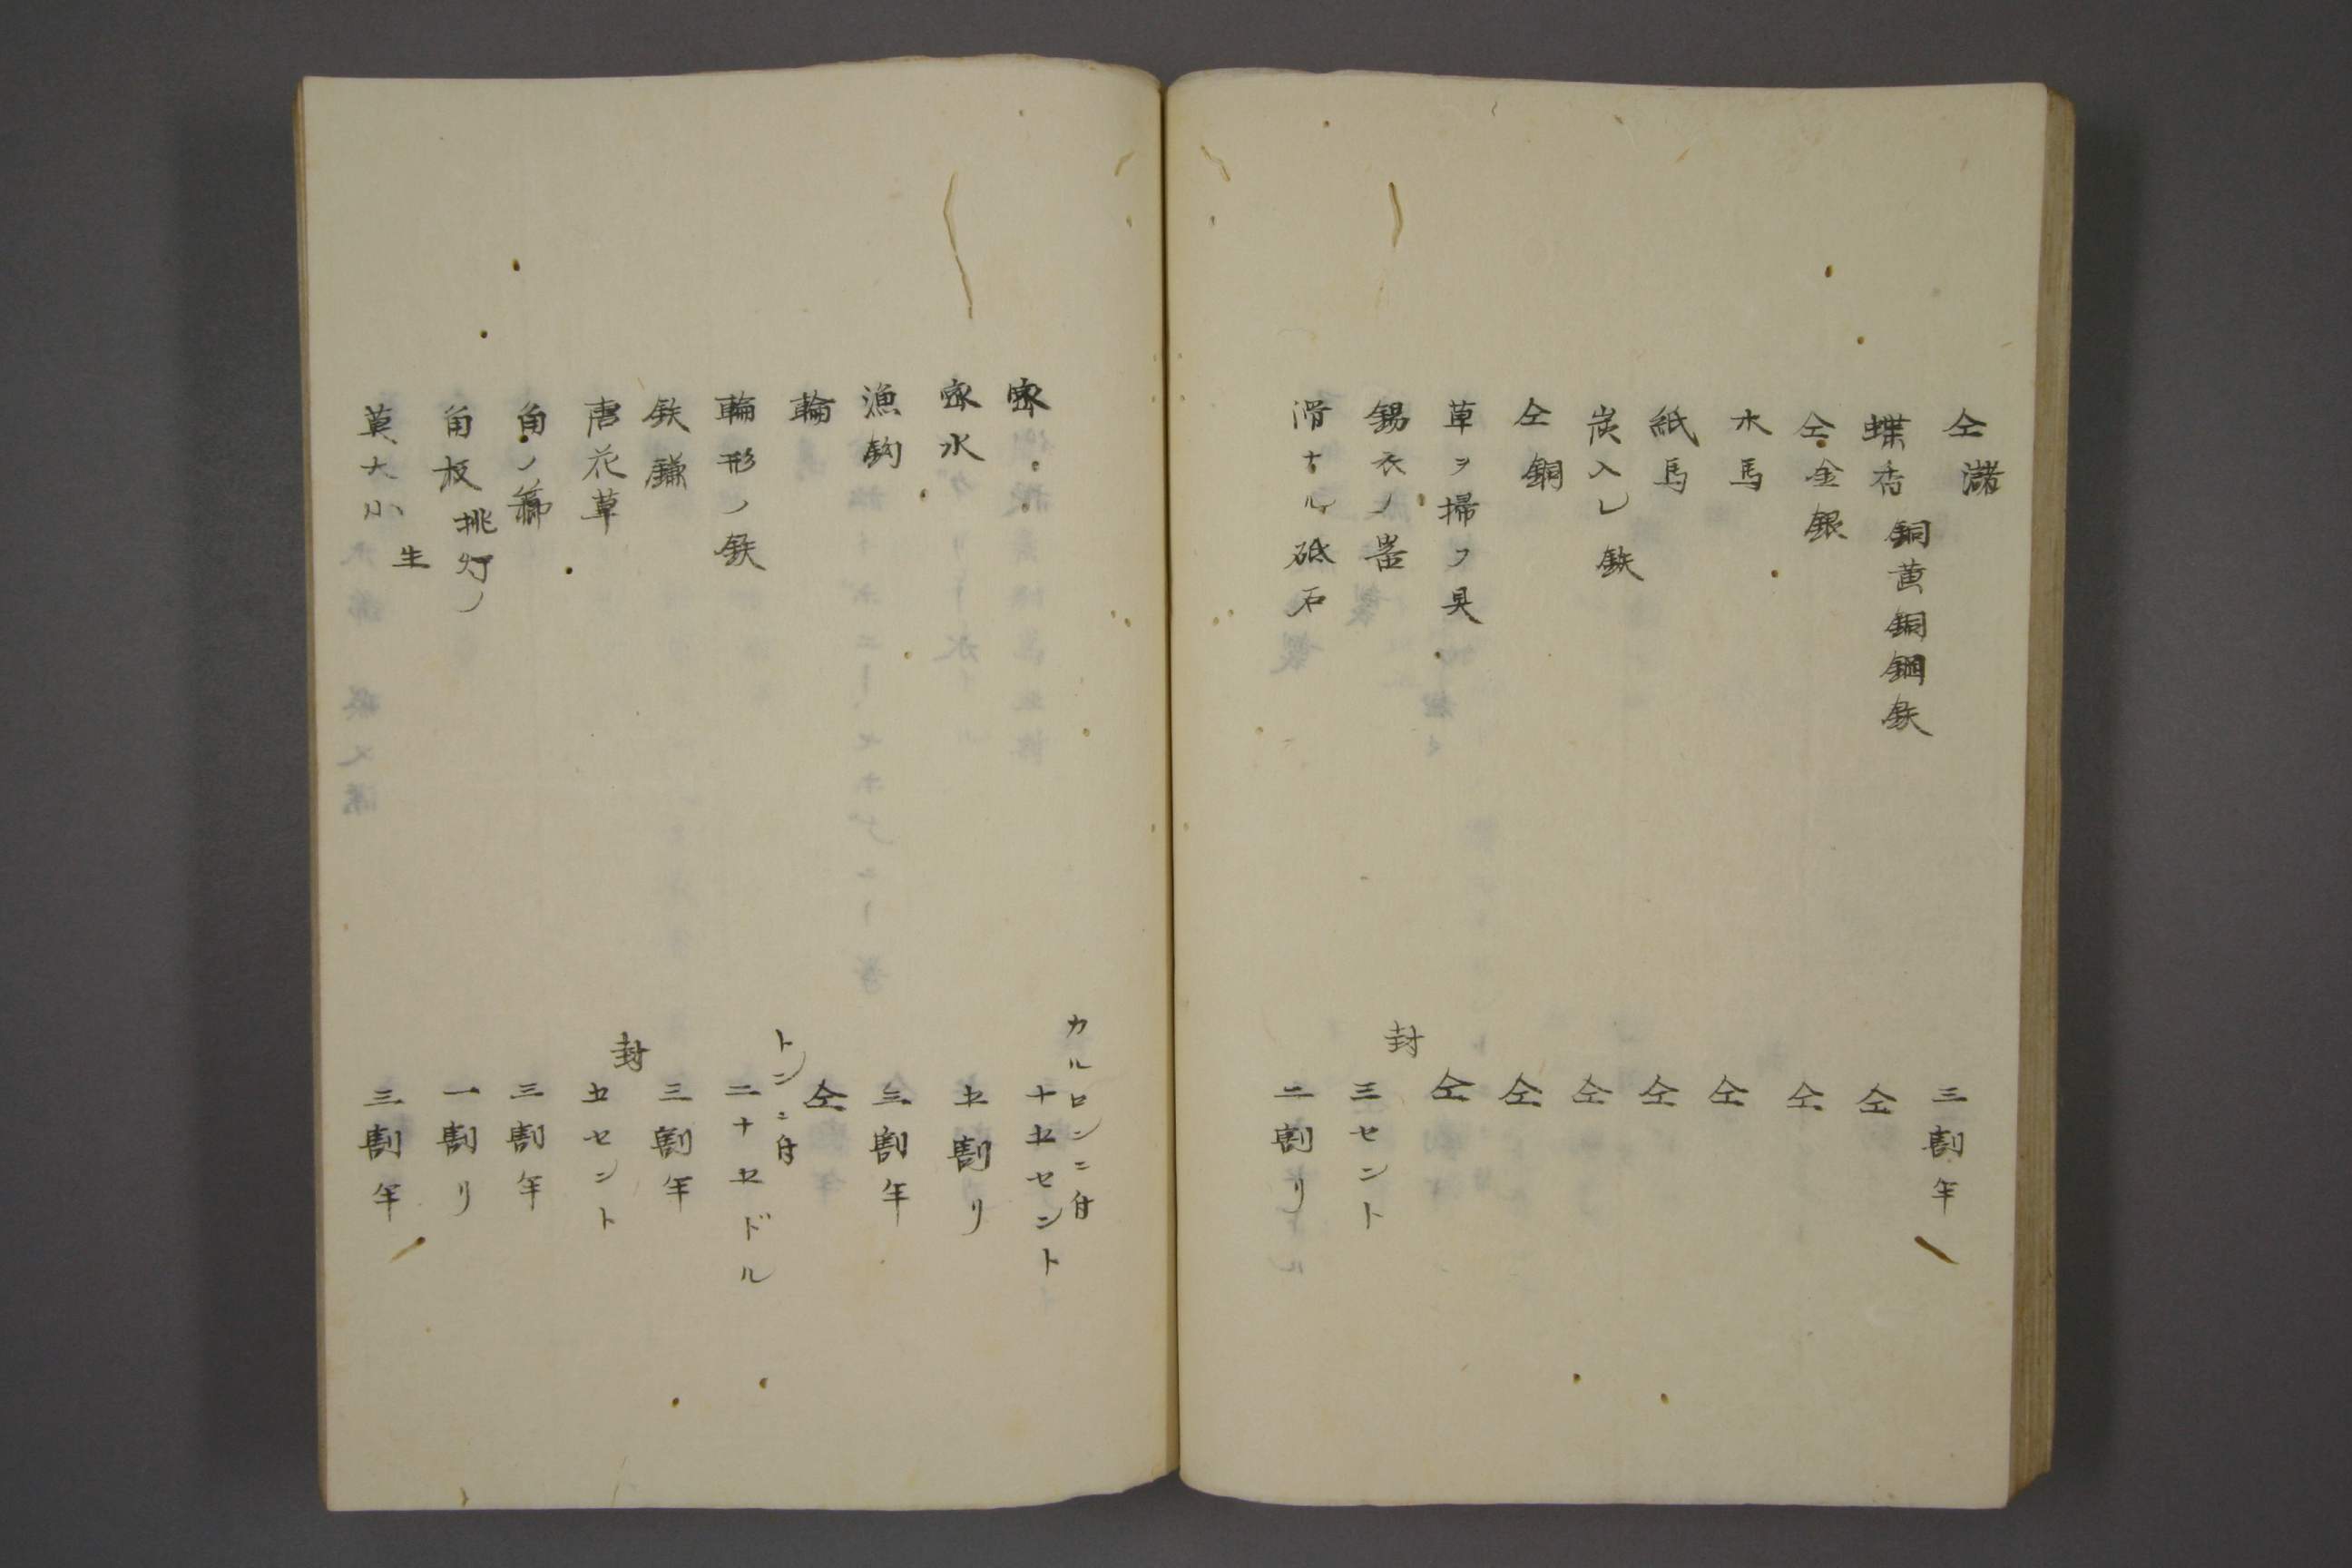 仝 瀦 三割半
蝶番 銅黄銅鋼鉄 仝
仝 金銀 仝
木馬 仝
紙馬 仝
炭入レ 鉄 仝
仝 銅 仝
草ヲ掃フ具 仝
錫衣ノ噐 封 三セント
滑ナル砥石 二割リ
蜜 カルロンニ付 十五セント
蜜水 五割リ
漁鈎 三割半
輪 仝
輪形ノ鉄 トンニ付 二十五ドル
鉄鎌 三割半
唐花草 封 五セント
角ノ 三割半
角板 挑灯ノ 一割リ
莫大小 生 三割半